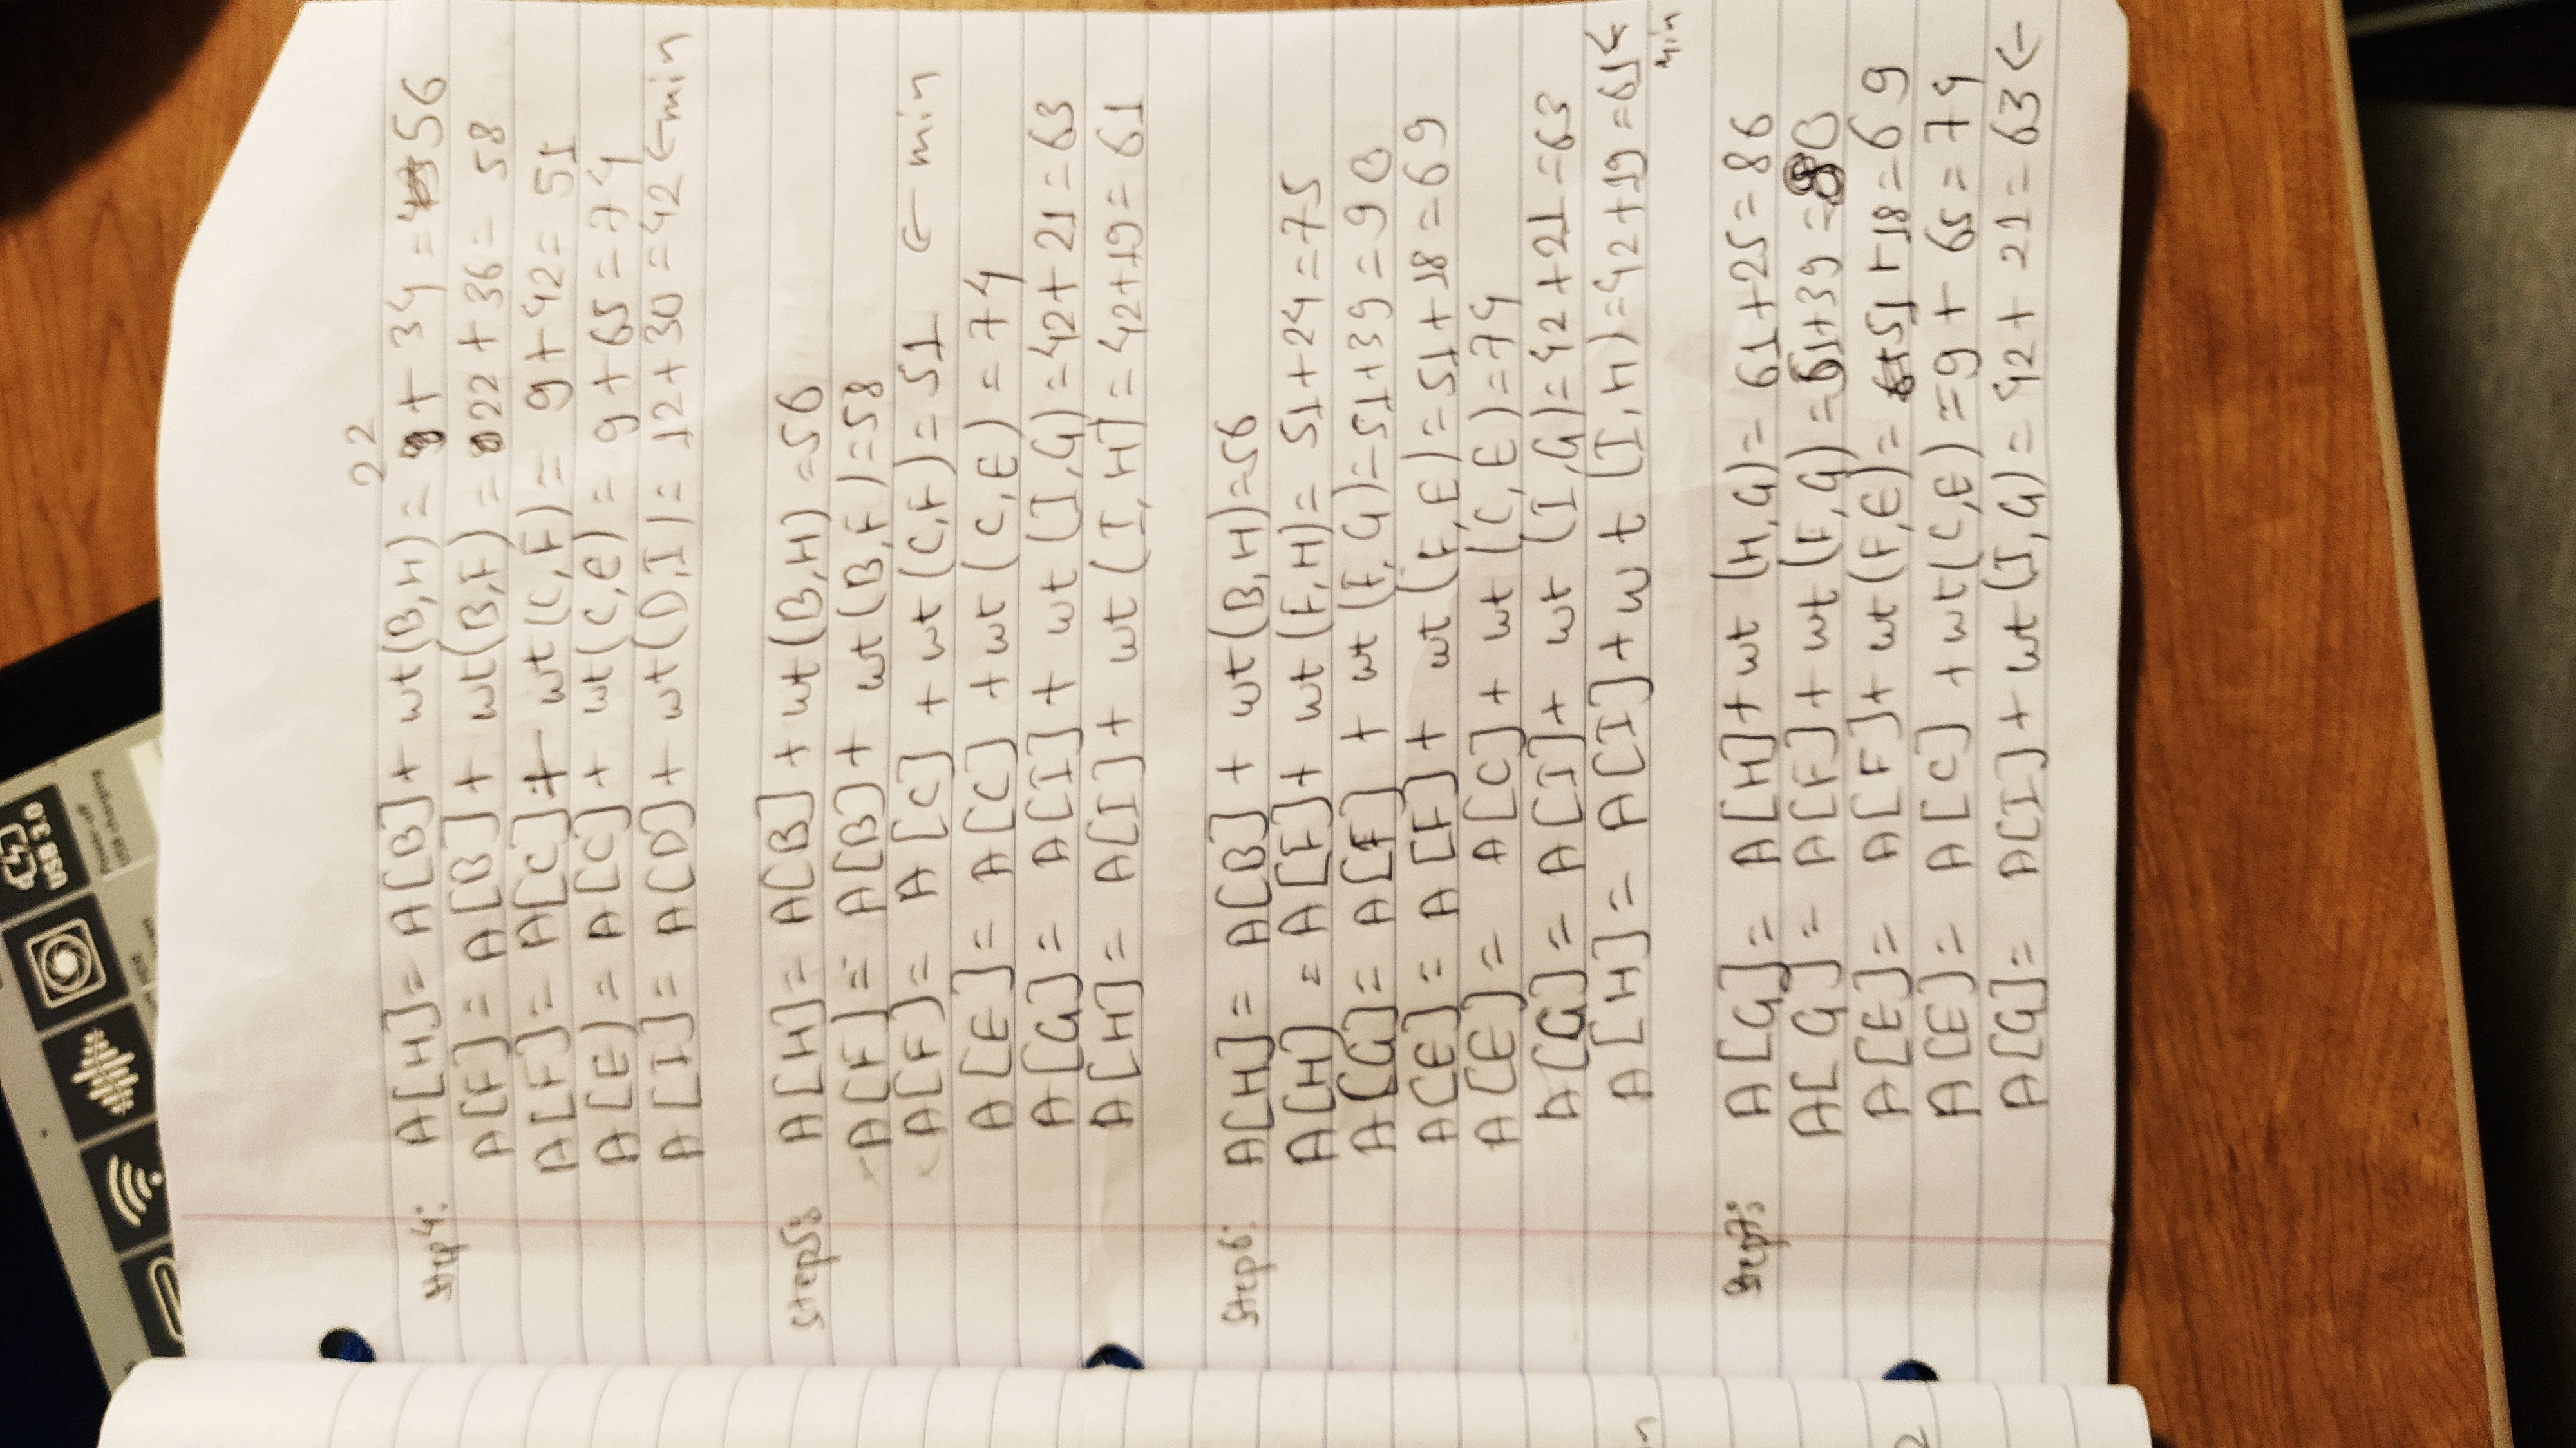 USB 3.0
Power-off
USB charging
22
Step4: A[H]= A[B]+ wt(B,H) = + 34 = 56
A[F]= A[B]+ wt(B,F) = 22 + 36 = 58
A[F]= A[C]+ wt(C,F) = 9+42= 51
A[E) = A[C]+ wt(C,E) = 9+65=74
A[I]= A[D]+ wt(D,I)= 12+30 =42 ←min
Step5: A[H]= A[B] + wt(B,H) =56
A[F] = A[B]+ wt(B,F)=58
A[F]= A[C] + wt(C,F)= 51 ← min
A[E]= A[C] +wt(C,E) = 74
A[G]= A[I]+ wt(I,G)=42+21=63
A[H]= A[I]+ wt(I,H]=42+19= 61
Step6: A[H]= A[B] + wt(B,H)=56
A[H] = A[F]+ wt(F,H)= 51+24=75
A[G]= A[F] + wt(F,G)=51+39=90
A[E]= A[F]+ wt(F,E)=51+18=69
A[E]= A[C]+ wt(C,E)=74
A[G]= A[I]+ wt(I,G)=42+21=63
A[H]= A[I]+wt(I,H)=42+19=61←
min
Step7: A[G]= A[H]+wt(H,G)= 61+25=86
A[G]= A[F]+wt(F,G)=51+39=90
A[E]= A[F]+wt(F,E)= 51+18=69
A[E]= A[C] +wt(C,E)=9+ 65=74
A[G]= A[I]+wt(I,G)=42+ 21=63←